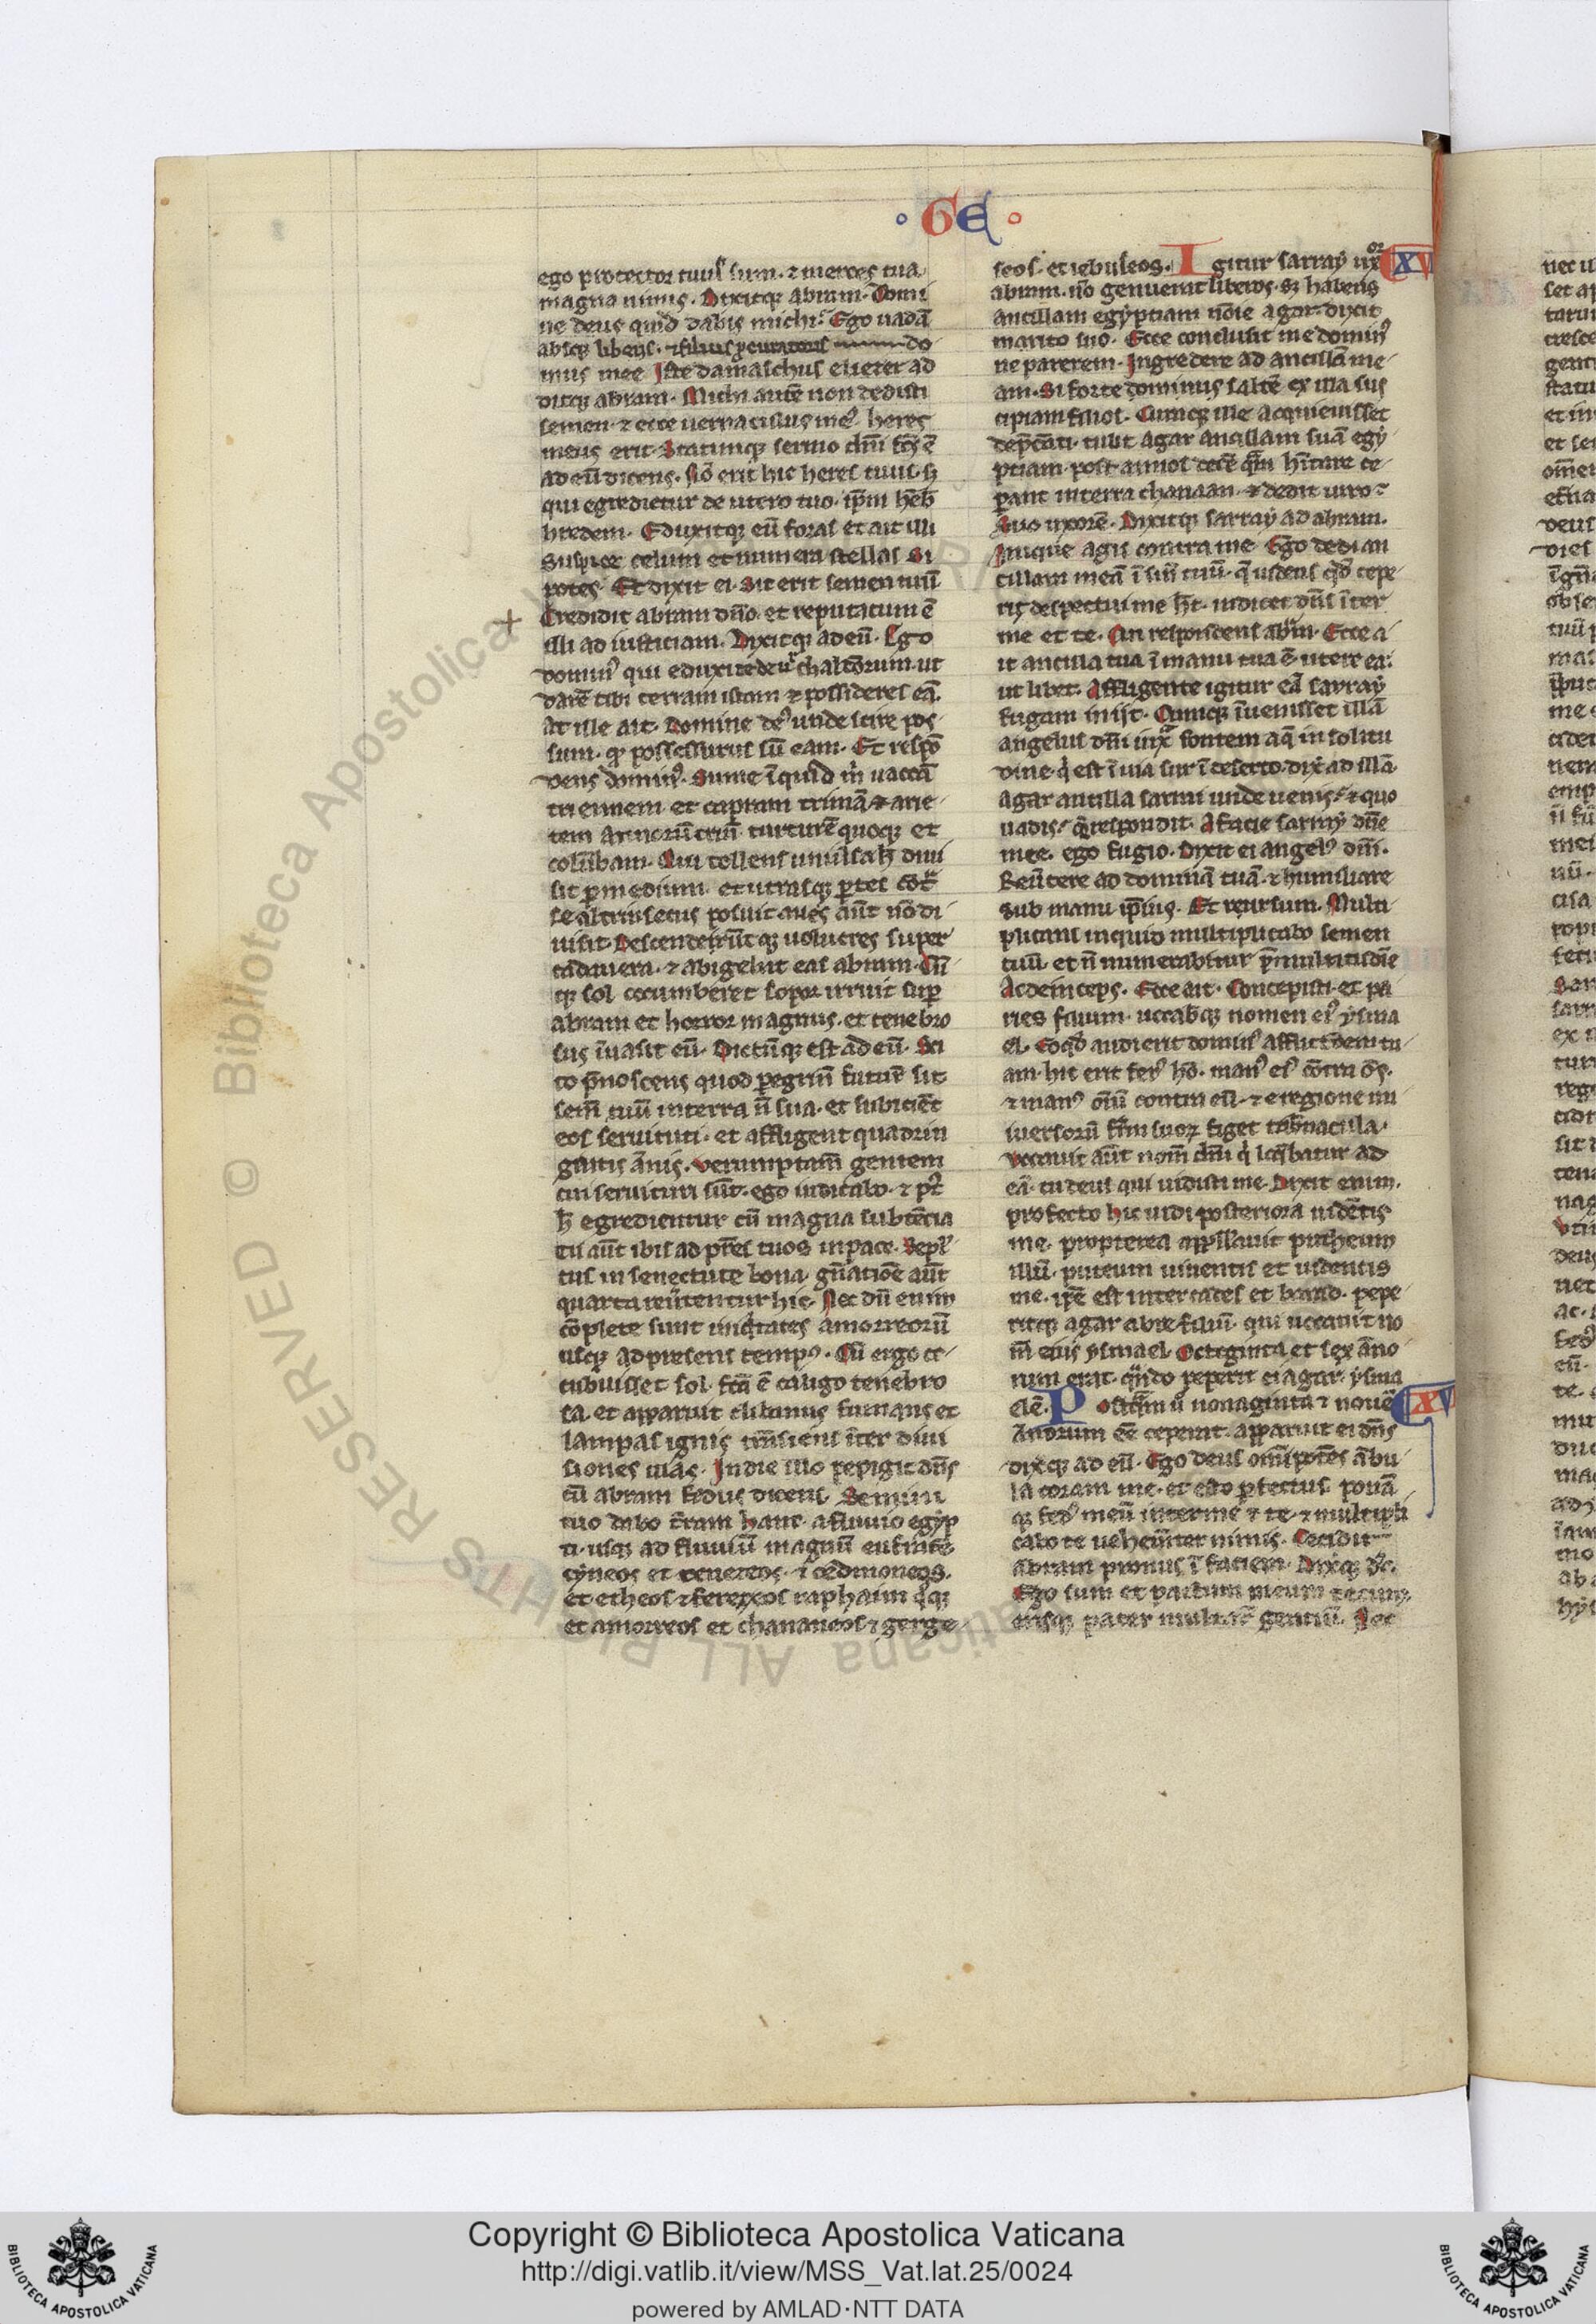 GE
ego protector tuus sum. ⁊ merces tua
magna nimis. Dixitqꝫ abram. Domi
ne deus quid dabis michi. Ego uadā
absqꝫ liberis. ⁊ filius ꝓcuratoris do
mus mee Iste damaschus eliezer ad
ditqꝫ abram. Michi autē non dedisti
semen. ⁊ ecce uernaculus meꝰ heres
meus erit. Statimqꝫ sermo dn̄i fc̄s ē
ad eū dicens. Nō erit hic heres tuus. sꝫ
qui egredietur de utero tuo. ip̄m hēb
hredem. Eduxitqꝫ eū foras et ait illi
Suspice celum et numera stellas Si
potes. Et dixit ei. Sic erit semen tuū
Credidit abram dn̄o. et reputatum ē
illi ad iusticiam. Dixitqꝫ ad eū. Ego
dominꝰ qui eduxi te de ur chaldeorum. ut
darē tibi terram istam ⁊ possideres eā.
At ille ait. Domine deꝰ unde scire pos
sum. qꝫ possessurus sū eam. Et respō
dens dominꝰ. Sume īquid m̄ uaccā
triennem et capram trimā ⁊ arie
tem annorū triū. turturē quoqꝫ et
colūbam. Qui tollens uniuersa h̄ diui
sit ꝑ medium. et utrasqꝫ ꝑtes cōt̄
se altrinsecus posuit aues aūt nō di
uisit. Descenderūtqꝫ uolucres super
cadauera. ⁊ abigebat eas abram. Cū
qꝫ sol occumberet sopor irruit suꝑ
abram et horror magnus. et tenebro
sus īuasit eū. Dictūqꝫ est ad eū. Sci
to p̄noscens quod ꝑegrinū futurū sit
sem̄ tuū in terra n̄ sua. et subicient
eos seruituti. et affligent quadrin
gintis ānis. verumptam̄ gentem
cui seruituri sūt. ego iudicabo. ⁊ pꝰ
h̄ egredientur cū magna substācia
Tu aūt ibis ad pr̄es tuos in pace. Sepl
tus in senectute bona. gn̄atiōe aūt
quarta reūtentur hic. Nec dū enim
cōplete sunt iniq̄tates amorreorū
usqꝫ ad presens tempꝰ. Cū ergo oc
cubuisset sol. fc̄a ē caligo tenebro
sa. et apparuit clibanus fumans et
lampas ignis trāsiens īter diui
siones illas. In die illo pepigit dn̄s
cū abram fedus dicens. Semini
tuo dabo t̄ram hanc. a fluuio egyp
ti. usqꝫ ad fluuiū magnū eufratē
cyneos et cenezeos. ⁊ cedmoneos.
et etheos ⁊ ferezeos raphaim qꝫqꝫ
et amorreos et chananeos ⁊ gerge
seos. et iebuseos. Igitur sarray uxor XVI
abram. nō genuerat liberos. sꝫ habens
ancillam egyptiam nōie agar. dixit
marito suo. Ecce conclusit me dominꝰ
ne parerem. Ingredere ad ancillā me
am. Si forte dominus saltē ex illa sus
cipiam filios. Cumqꝫ ille acquieuisset
dep̄cāti. tulit agar ancillam suā egy
ptiam. post annos decē q̄m h̄itare ce
perant in terra chanaan. ⁊ dedit uiro
Suo uxorē. Dixitqꝫ sarray ad abram.
Inique agis contra me Ego dedi an
cillam meā ī sinū tuū. q̄ uidens qd̄ cepe
rit despectui me h̄t. iudicet dn̄s īter
me et te. Cui respondens abrā. Ecce a
it ancilla tua ī manu tua ē. utere ea.
ut libet. Affligente igitur eā sarray
fugam inijt. Cumqꝫ īuenisset illā
angelus dn̄i iuxͣ fontem aq̄ in solitu
dine. q̄ est ī uia sur ī deserto. dix̄ ad illā
agar ancilla sarai unde uenis. ⁊ quo
uadis. Q̄ respondit. A facie sarray dn̄e
mee. ego fugio. Dixit ei angelꝰ dn̄i.
Reūtere ad dominā tuā. ⁊ humiliare
sub manu ip̄ius. Et rursum. Multi
plicans inquid multiplicabo semen
tuū. et n̄ numerabitur p̄ multitudīe
Ac deinceps. Ecce ait. Concepisti. et pa
ries filium. uocabqꝫ nomen eiꝰ ysma
el. Eo qd̄ audierit dominꝰ afflictōem tu
am. hic erit ferꝰ hō. manꝰ eiꝰ cōtra ōs.
⁊ manꝰ oīū contra eū. ⁊ e regione uni
uersorū fr̄m suoꝝ figet tab̄nacula.
Vocauit aūt nom̄ dn̄i q̄ loq̄batur ad
eā. tu deus qui uidisti me. Dixit enim.
profecto hic uidi posteriora uidētis
me. propterea appellauit putheum
illū. puteum uiuentis et uidentis
me. ip̄e est inter cades et barad. pepe
ritqꝫ agar abre filiū. qui uocauit no
m̄ eius ysmael. Octoginta et sex āno
rum erat. q̄ndo peperit ei agar. ysma
elē. Postq̄m ū nonaginta ⁊ nouē XVII
ānorum eē ceperat. apparuit ei dn̄s
dixqꝫ ad eū. Ego deus omīpotēs ābu
la coram me. et esto ꝑfectus. ponā
qꝫ fedꝰ meū inter me ⁊ te. ⁊ multipli
cabo te uehemēter nimis. Cecidit
abram pronus ī faciem. Dixqꝫ
Ego sum et pactum meum tecum.
erisqꝫ pater multaꝝ gentiū. Nec
Copyright © Biblioteca Apostolica Vaticana
http://digi.vatlib.it/view/MSS_Vat.lat.25/0024
powered by AMLAD·NTT DATA